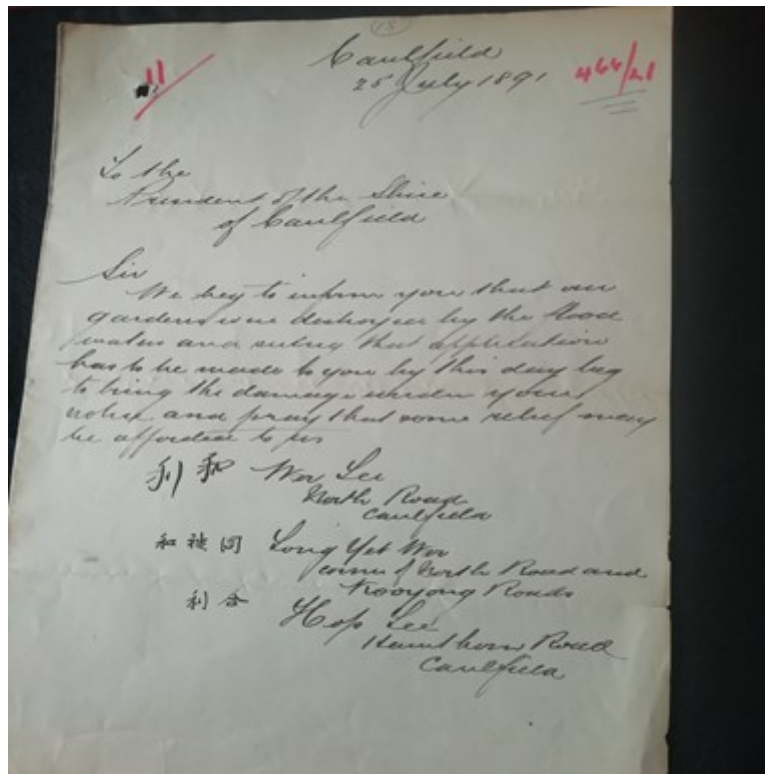 15
11
Caulfield
25 July 1891
466/21
To the
President of the Shire
of Caulfield
Sir
We beg to inform you that our
gardens were destroyed by the flood
waters and seeing that application
has to be made to you by this day beg
to bring the damage under your
notice and pray that some relief may
be afforded to us
利和 Wor Lee
North Road
Caulfield
Long Yet Wor
corner of North Road and
Kooyong Roads
利合 Hop Lee
Hawthorn Road
Caulfield